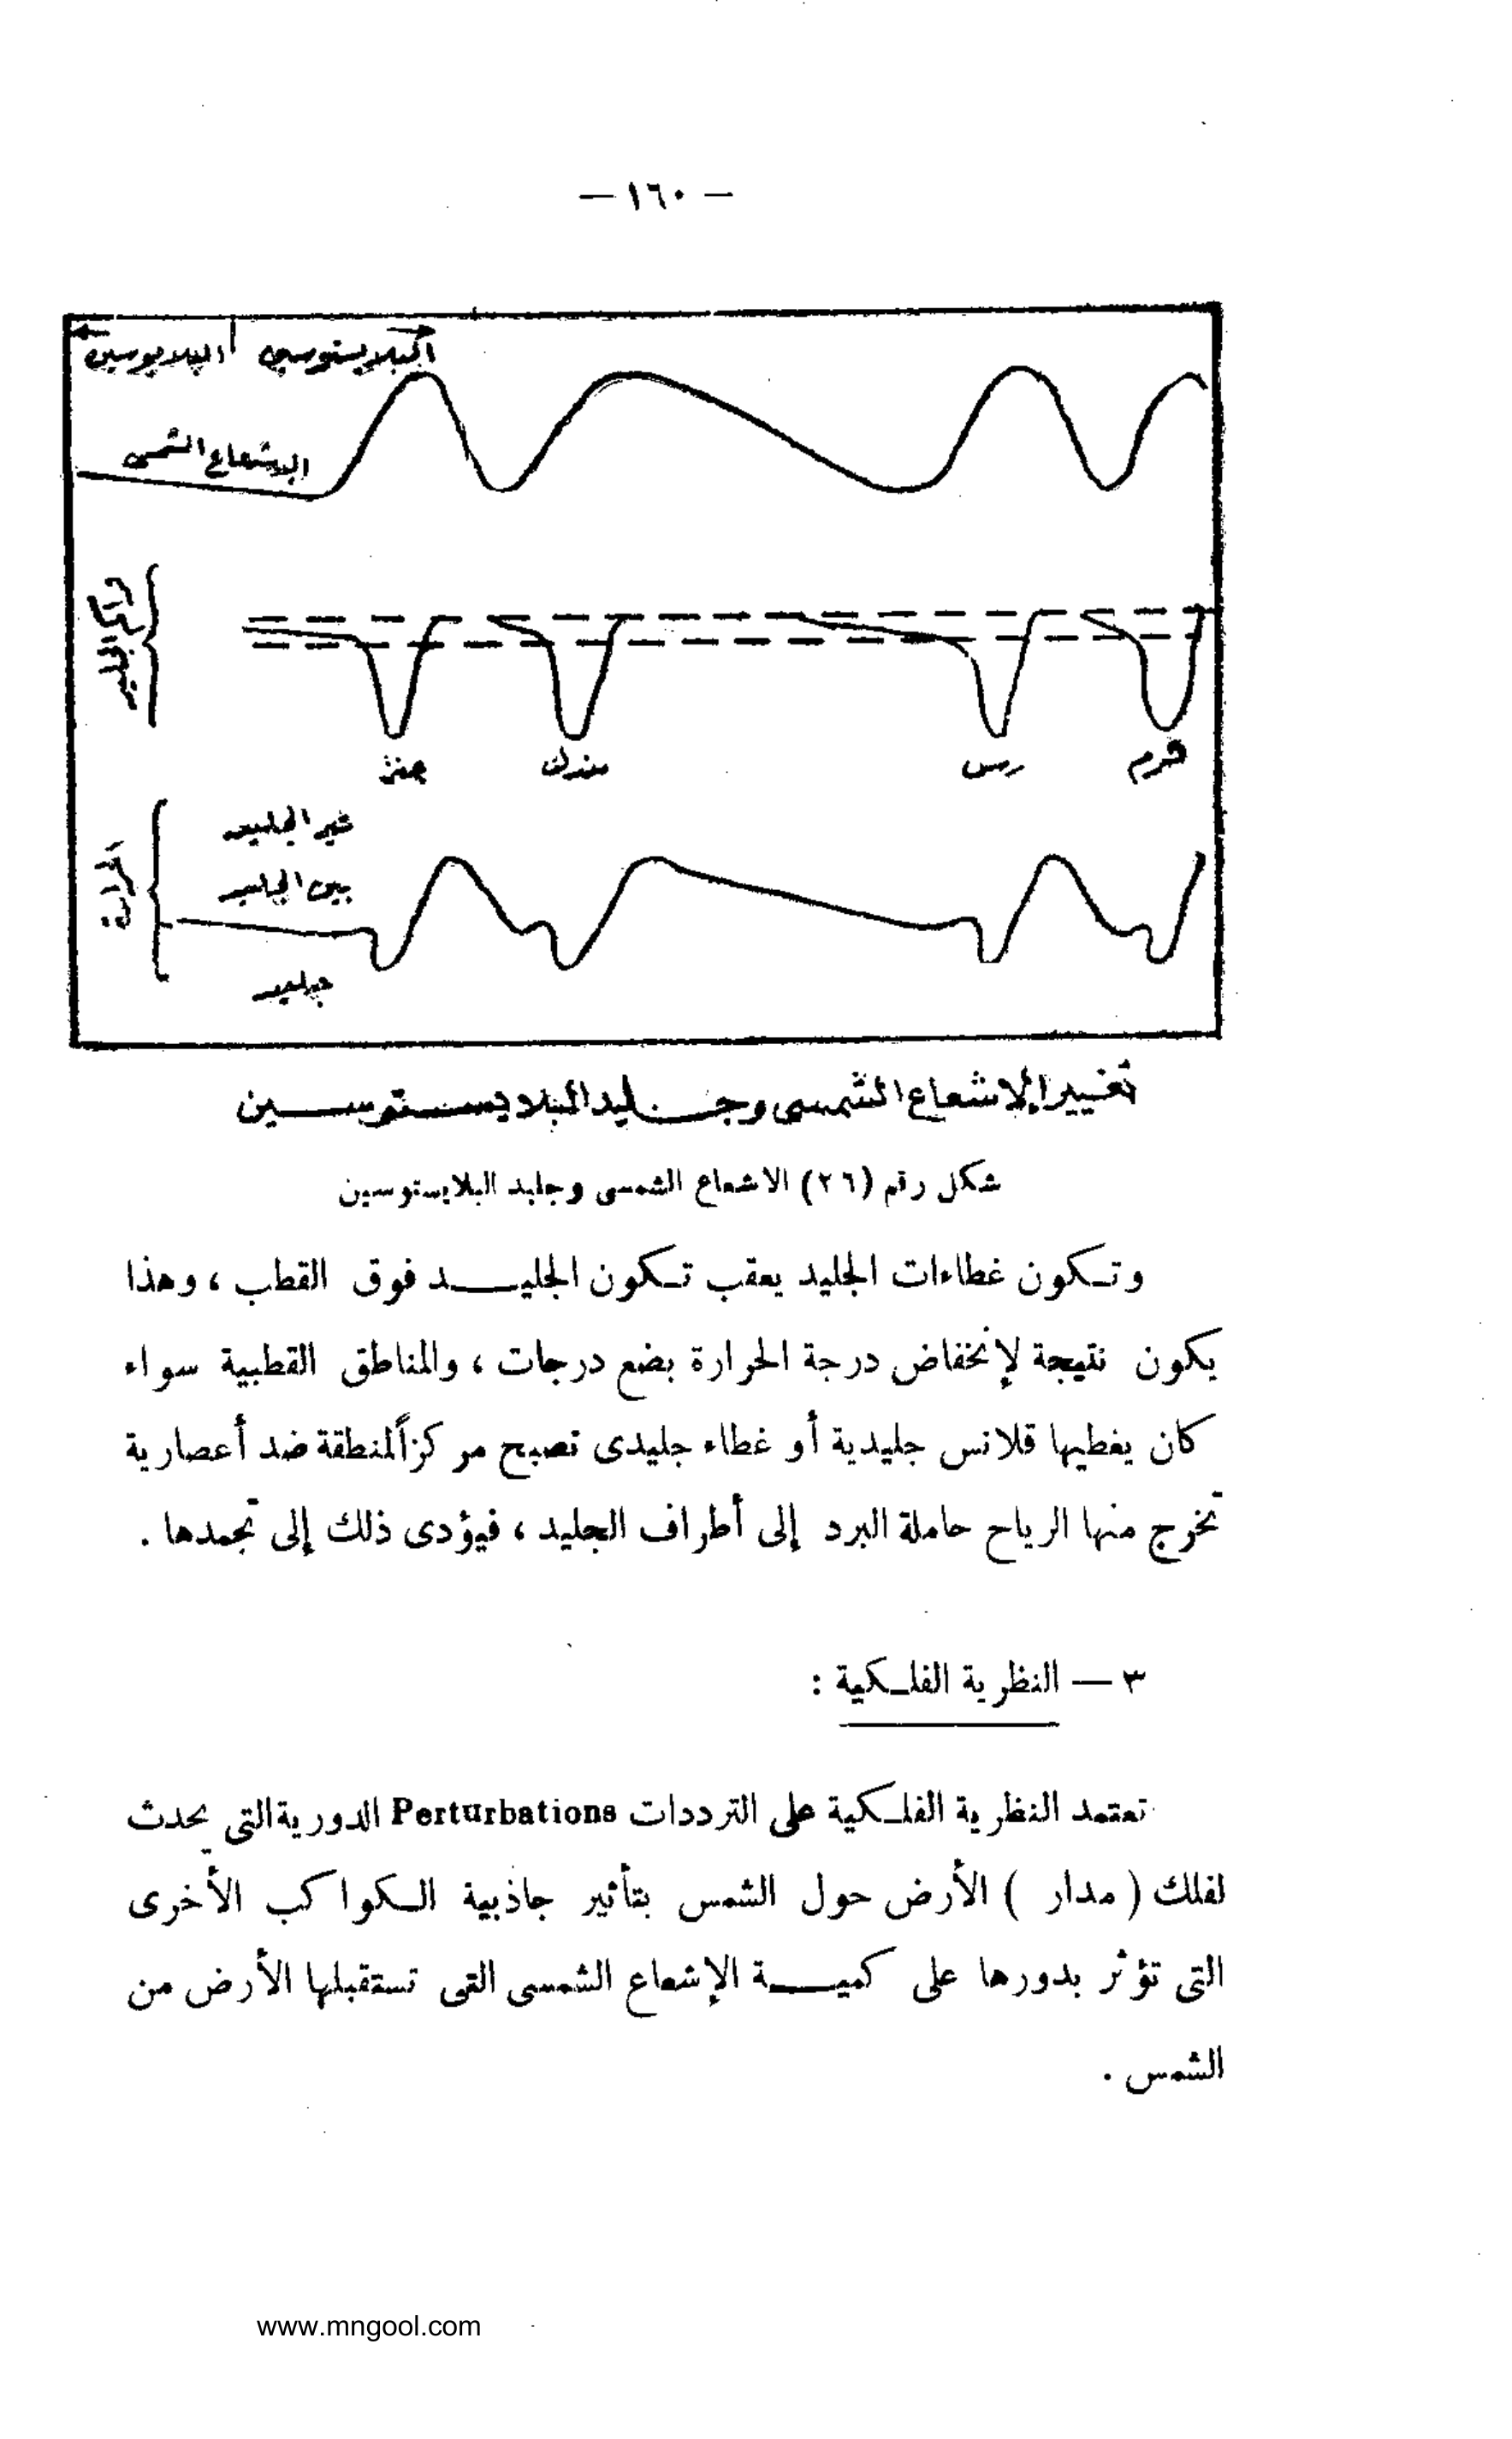 — ١٦٠ —
البلايوسين البلايستوسين
الاشعاع الشمسى
تراكم الجليد
جنز مندل رس فرم
غير الجليد
بين الجليد
الحرارة
جليد
تغيير الاشعاع الشمسى وجليد البلايستوسين
شكل رقم (٢٦) الاشعاع الشمسى وجليد البلايستوسين
وتكون غطاءات الجليد يعقب تكون الجليد فوق القطب ، وهذا
يكون نتيجة لإنخفاض درجة الحرارة بضع درجات ، والمناطق القطبية سواء
كان يغطيها قلانس جليدية أو غطاء جليدى تصبح مركزاً لمنطقة ضد أعصارية
تخرج منها الرياح حاملة البرد إلى أطراف الجليد ، فيؤدى ذلك إلى تجمدها .
٣ — النظرية الفلكية :
تعتمد النظرية الفلكية على الترددات Perturbations الدورية التى يحدث
لفلك ( مدار ) الأرض حول الشمس بتأثير جاذبية الكواكب الأخرى
التى تؤثر بدورها على كمية الإشعاع الشمسى التى تستقبلها الأرض من
الشمس .
www.mngool.com